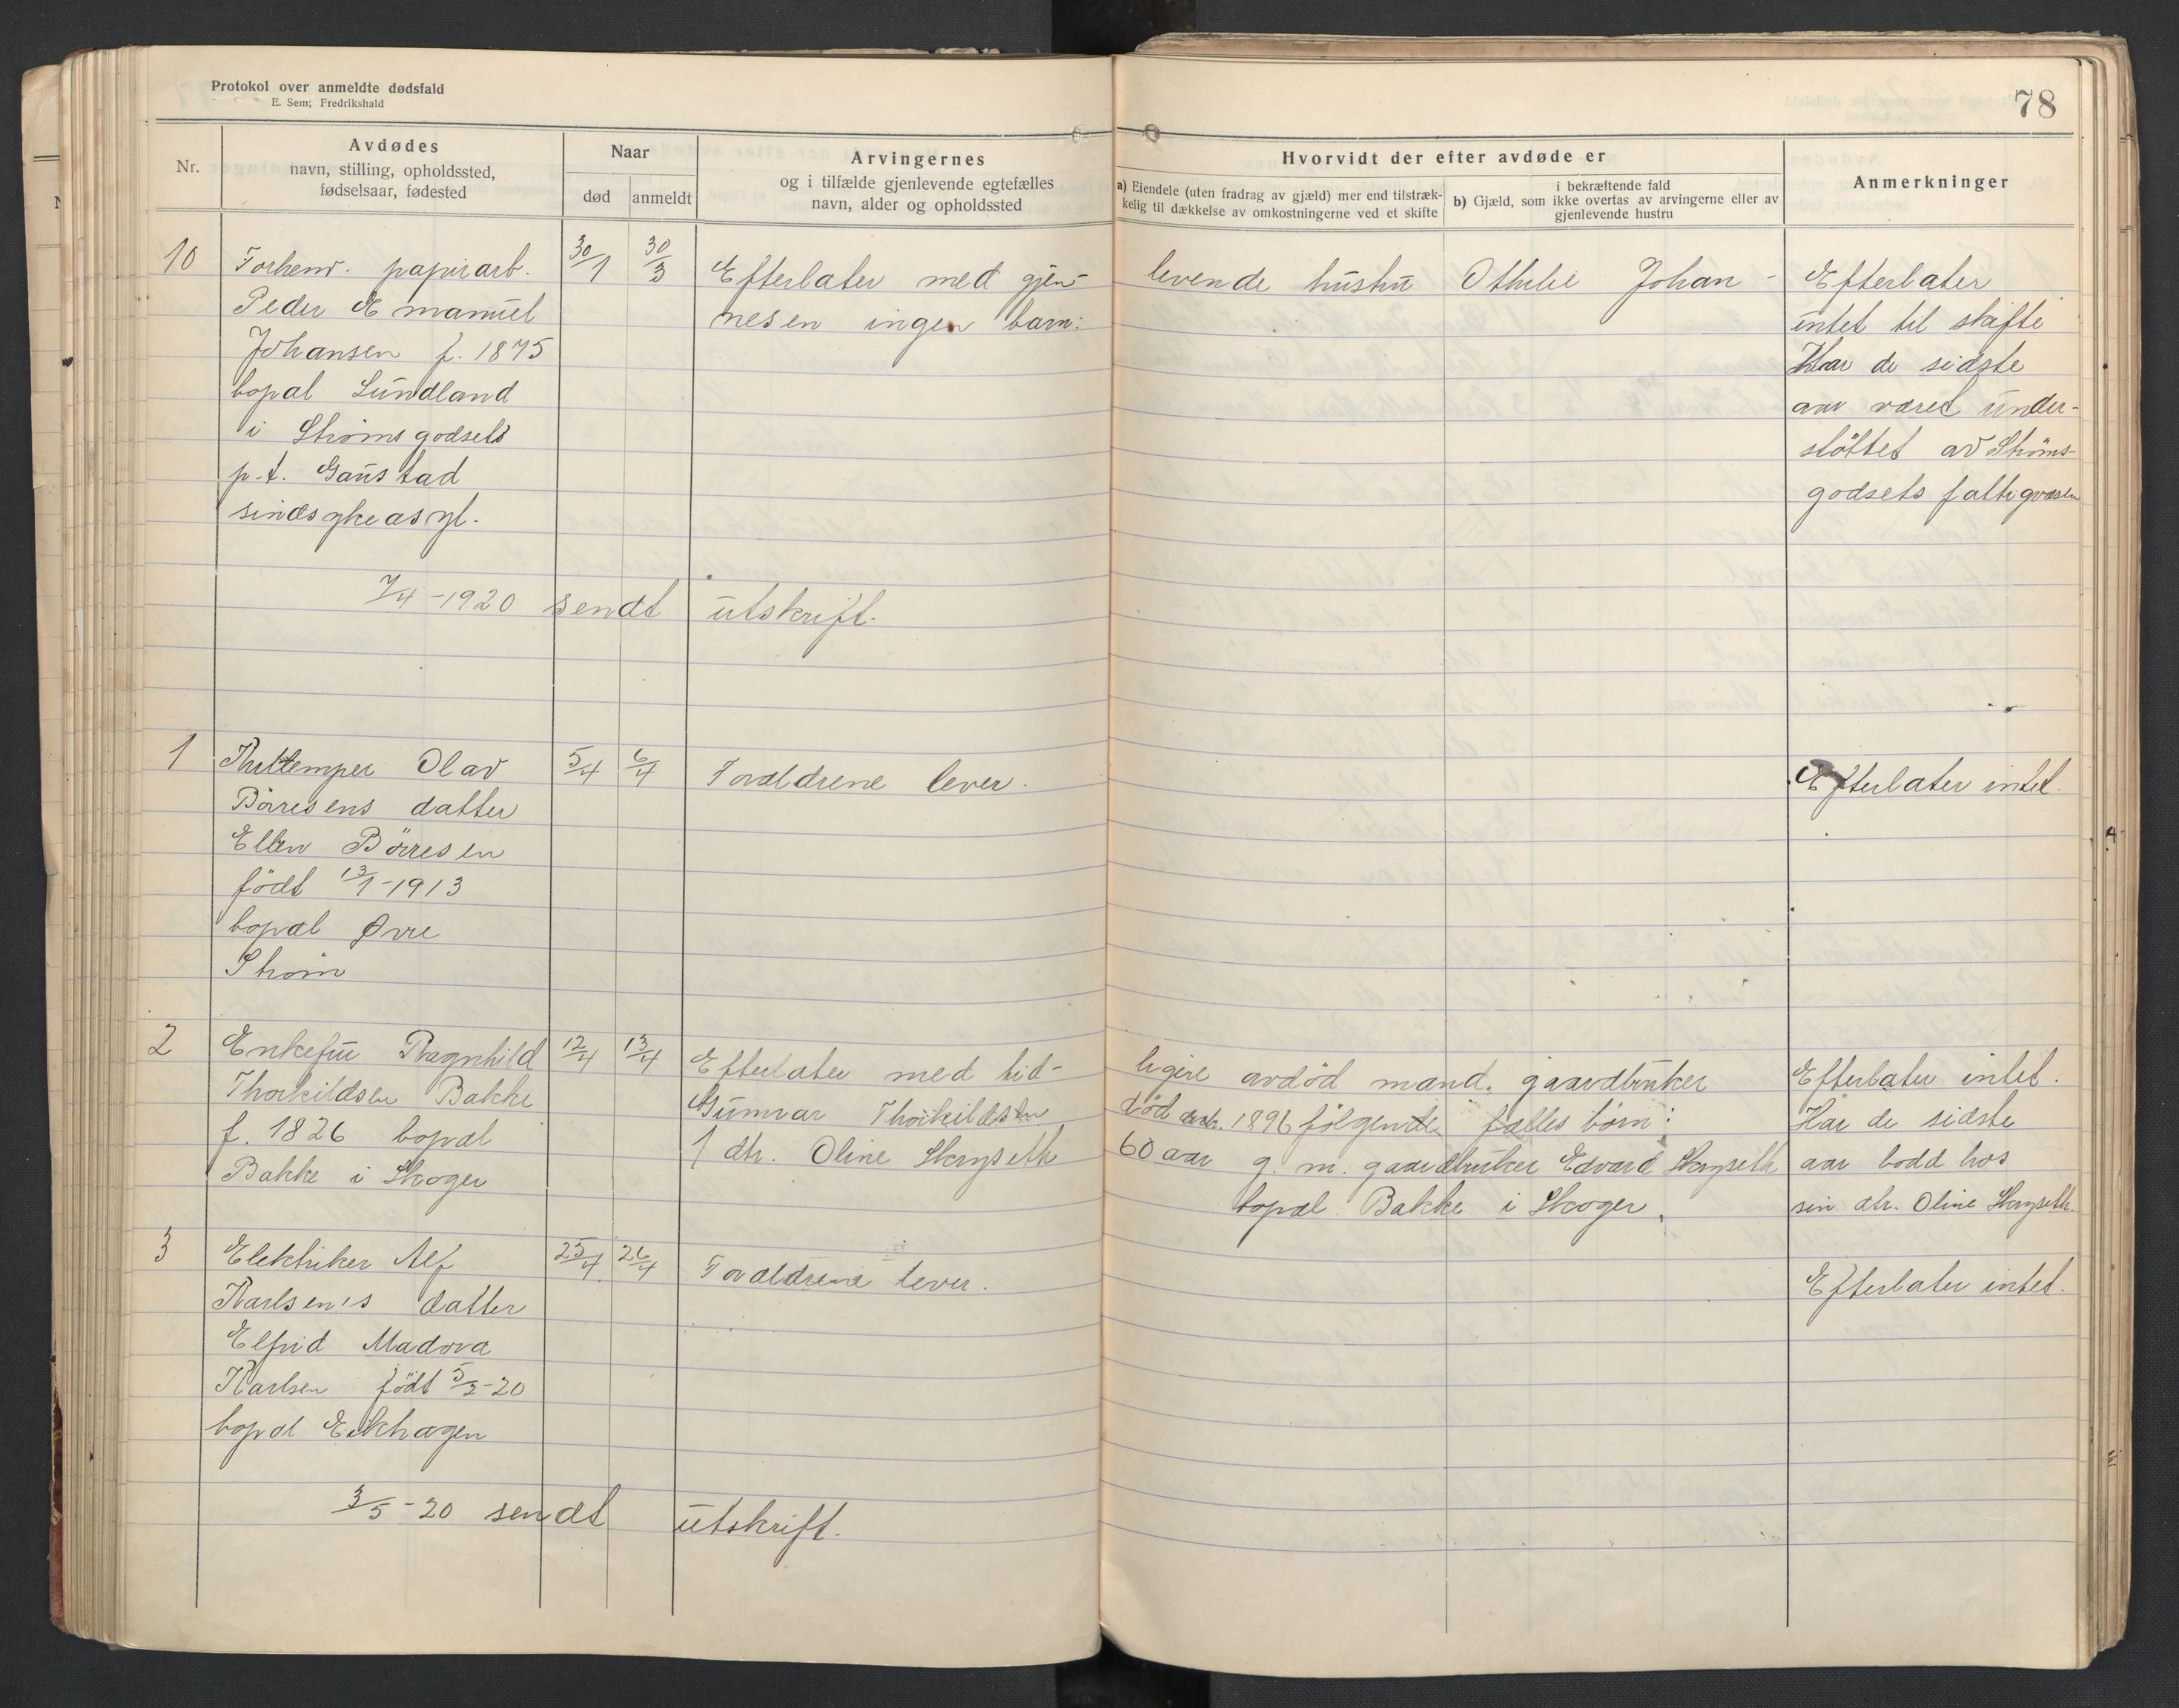 Protokol over anmeldte dødsfald
E. Sem; Fredrikshald
78
Nr.
Avdødes
navn, stilling, opholdssted,
fødselsaar, fødested
Naar
død
anmeldt
Arvingernes
og i tilfælde gjenlevende egtefælles
navn, alder og opholdssted
Hvorvidt der efter avdøde er
a) Eiendele (uten fradrag av gjæld) mer end tilstræk-
kelig til dækkelse av omkostningerne ved et skifte
i bekræftende fald
b) Gjæld, som ikke overtas av arvingerne eller av
gjenlevende hustru
Anmerkninger
10 Forhenv. papirarb. 30/1 30/3 Efterlater med gjen- levende hustru Othilie Johan- Efterlater
Peder Emanuel nesen ingen barn: intet til skifte
Johansen f. 1875 Har de sidste
bopæl Sundland aar været under-
i Strømsgodsets støttet av Strøms-
p.t. Gaustad godsets fattigvæsen
sindsykeasyl.
7/4-1920 sendt utskrift.
1 Olav 5/4 6/4 Forældrene lever. Efterlater intet.
Börresens datter
Ellen Börresen
födt 13/1-1913
bopæl Øvre
Strøm
2 Enkefru Ragnhild 12/4 13/4 Efterlater med tid- ligere avdöd mand, gaardbruker Efterlater intet.
Thorkildsen Bakke Gunvar Thorkildsen död 1896 følgende fælles börn: Har de sidste
f. 1826 bopæl 1 dtr. Oline Skryseth 60 aar g. m. gaardbruker Edvard Skryseth aar bodd hos
Bakke i Skoger bopæl Bakke i Skoger. sin dtr. Oline Skryseth.
3 Elektriker Alf 25/4 26/4 Forældrene lever. Efterlater intet.
Karlsen's datter
Elfrid Madova
Karlsen födt 5/2-20
bopæl Eikhagen
3/5-20 sendt utskrift.